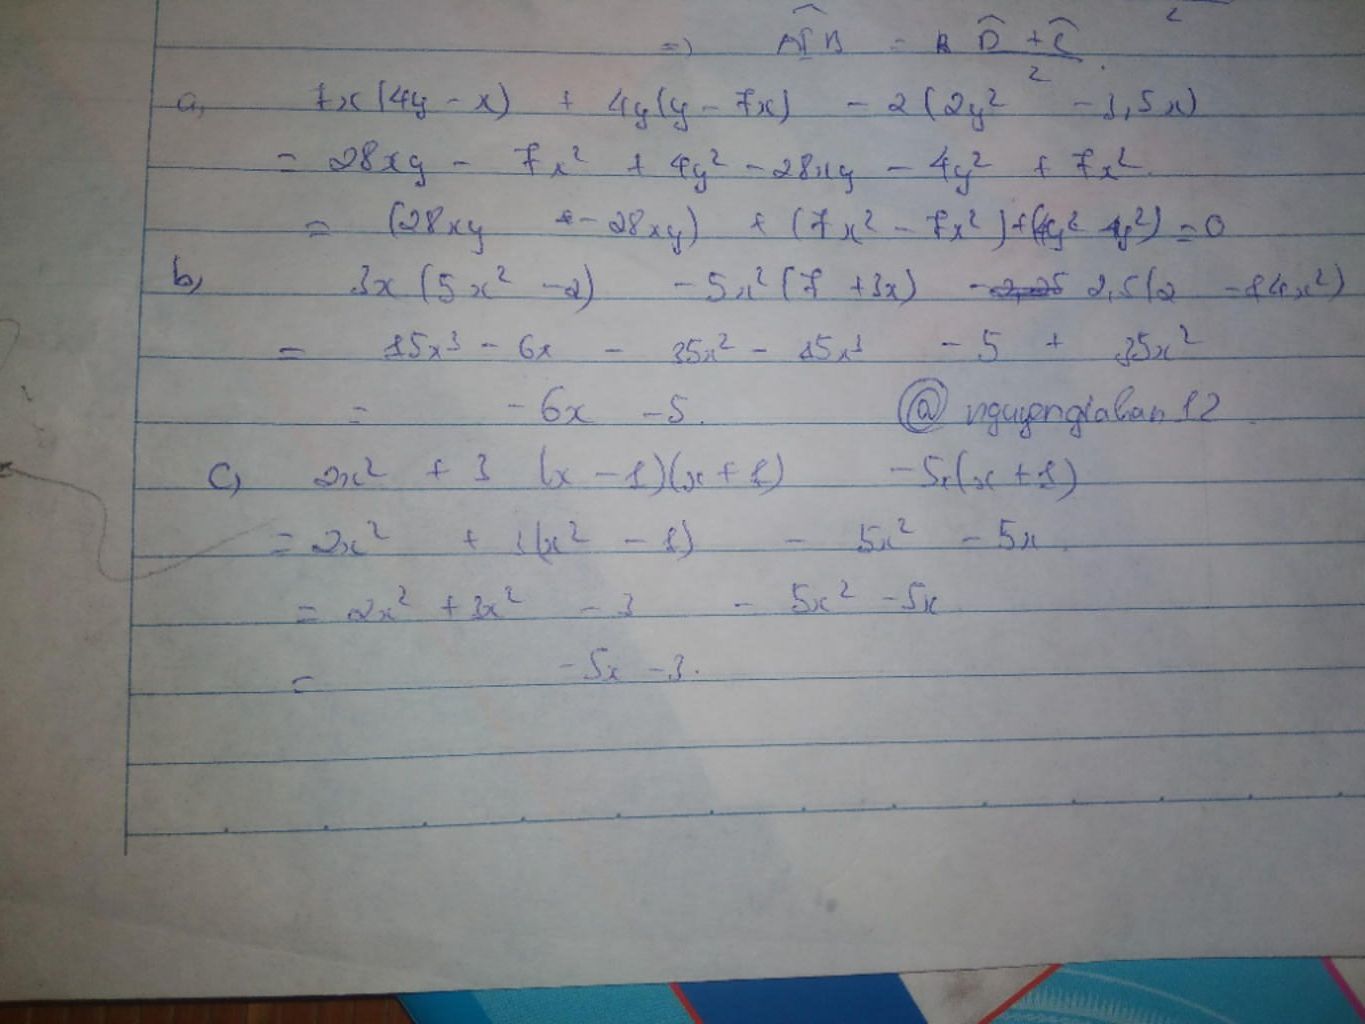 2
=> AIB = D + C
2
a, 7x(4y - x) + 4y(y - 7x) - 2(2y² - 3,5x)
= 28xy - 7x² + 4y² - 28xy - 4y² + 7x².
= (28xy - 28xy) + (7x² - 7x²) + (4y² - 4y²) = 0
b, 3x(5x² - 2) - 5x²(7 + 3x) - 2,5(2 - 14x²)
= 15x³ - 6x - 35x² - 15x³ - 5 + 35x²
= - 6x - 5. @ nguyengiahan12
c, 2x² + 3 (x - 1)(x + 1) - 5x(x + 1)
= 2x² + 3(x² - 1) - 5x² - 5x.
= 2x² + 3x² - 3 - 5x² - 5x
= - 5x - 3.